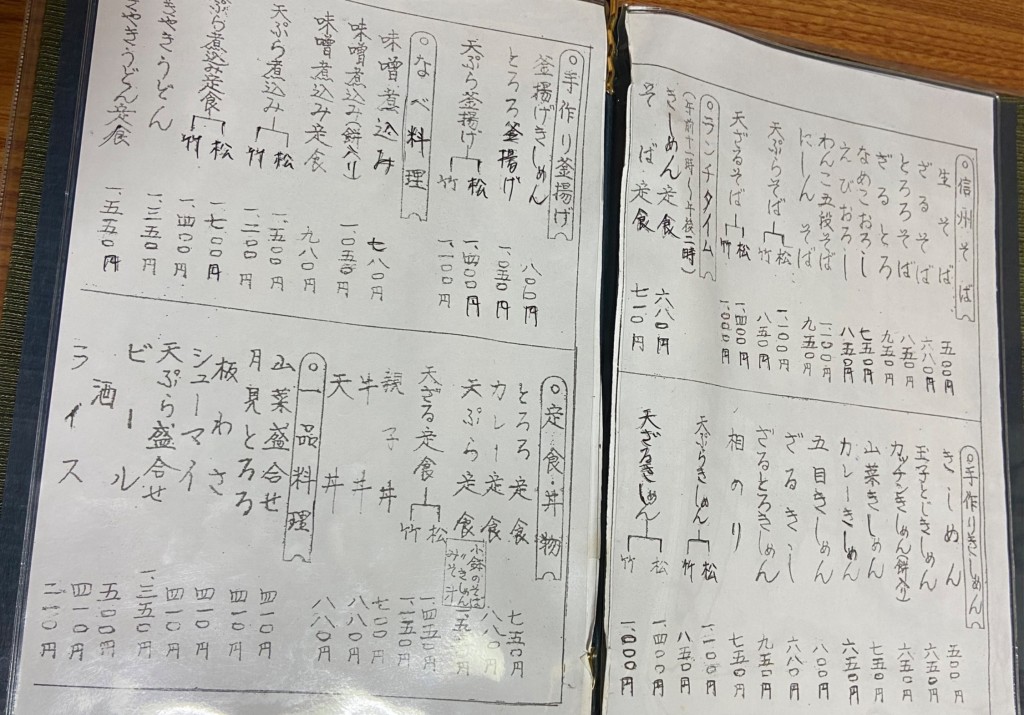 ◎信州そば
生そば 五〇〇円
ざるそば 六八〇円
とろろそば 八五〇円
ざるとろ 九五〇円
なめこおろし 七五〇円
えびおろし 八五〇円
わんこ五段そば 一、一〇〇円
にしんそば 九五〇円
天ぷらそば 松 一、一〇〇円
竹 八五〇円
天ざるそば 松 一、四〇〇円
竹 一、〇〇〇円
◎ランチタイム
(午前十一時～午後二時)
きしめん定食 六八〇円
そば定食 七一〇円
◎手作りきしめん
きしめん 五〇〇円
玉子とじきしめん 六五〇円
カッチンきしめん(餅入り) 六五〇円
山菜きしめん 七五〇円
カレーきしめん 六五〇円
五目きしめん 八〇〇円
ざるきし 六八〇円
ざるとろきしめん 九五〇円
相のり 七五〇円
天ぷらきしめん 松 一、一〇〇円
竹 八五〇円
天ざるきしめん 松 一、四〇〇円
竹 一、〇〇〇円
◎手作り釜揚げ
釜揚げきしめん 八〇〇円
とろろ釜揚げ 一、〇五〇円
天ぷら釜揚げ 松 一、四〇〇円
竹 一、一〇〇円
◎なべ料理
味噌煮込み 七八〇円
味噌煮込み(餅入り) 一、〇五〇円
味噌煮込み定食 九八〇円
天ぷら煮込み 松 一、五〇〇円
竹 一、二〇〇円
ぷら煮込み定食 松 一、七〇〇円
竹 一、四〇〇円
やきうどん 一、三五〇円
やきうどん定食 一、五五〇円
◎定食・丼物
とろろ定食 七五〇円
カレー定食 八八〇円
天ぷら定食
小鉢のそば
〃きしめん
みそ汁
天ざる定食 松 一、四五〇円
竹 一、一五〇円
親子丼 七〇〇円
牛丼 八八〇円
天丼 八八〇円
◎一品料理
山菜盛合せ 四一〇円
月見とろろ 四一〇円
板わさ 四一〇円
シューマイ 四一〇円
天ぷら盛合せ 一、三五〇円
ビール 五〇〇円
酒 四一〇円
ライス 二一〇円